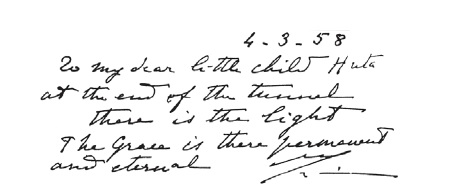 4-3-58
To my dear little child Huta
at the end of the tunnel
there is the light
The Grace is there permanent
and eternal